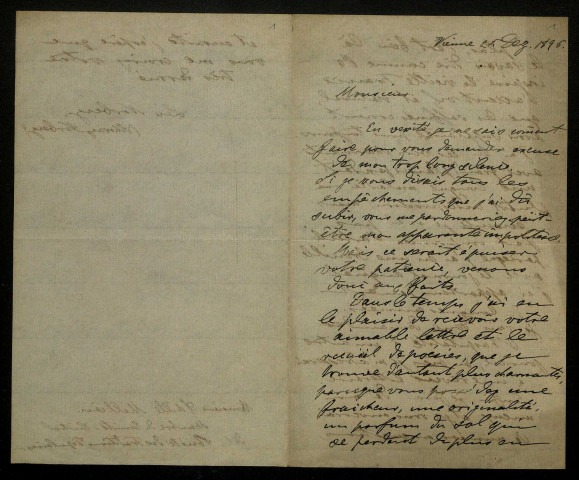 Vienne 26 Dez. 1896.
Monsieur
En vérité, je ne sais comment
faire pour vous demander excuse
de mon trop long silence.
Si je vous disais tous les
empêchements que j'ai dû
subir, vous me pardonneriez peut-
être mon apparente impolitesse.
Mais ce serait épuiser
votre patience, venons
donc aux faits.
Dans le temps j'ai eu
le plaisir de recevoir votre
aimable lettre et le
recueil de poésies, que je
trouve d'autant plus charmantes,
parceque vous une
fraicheur, une originalité,
un parfum du sol que
se perdent de plus en